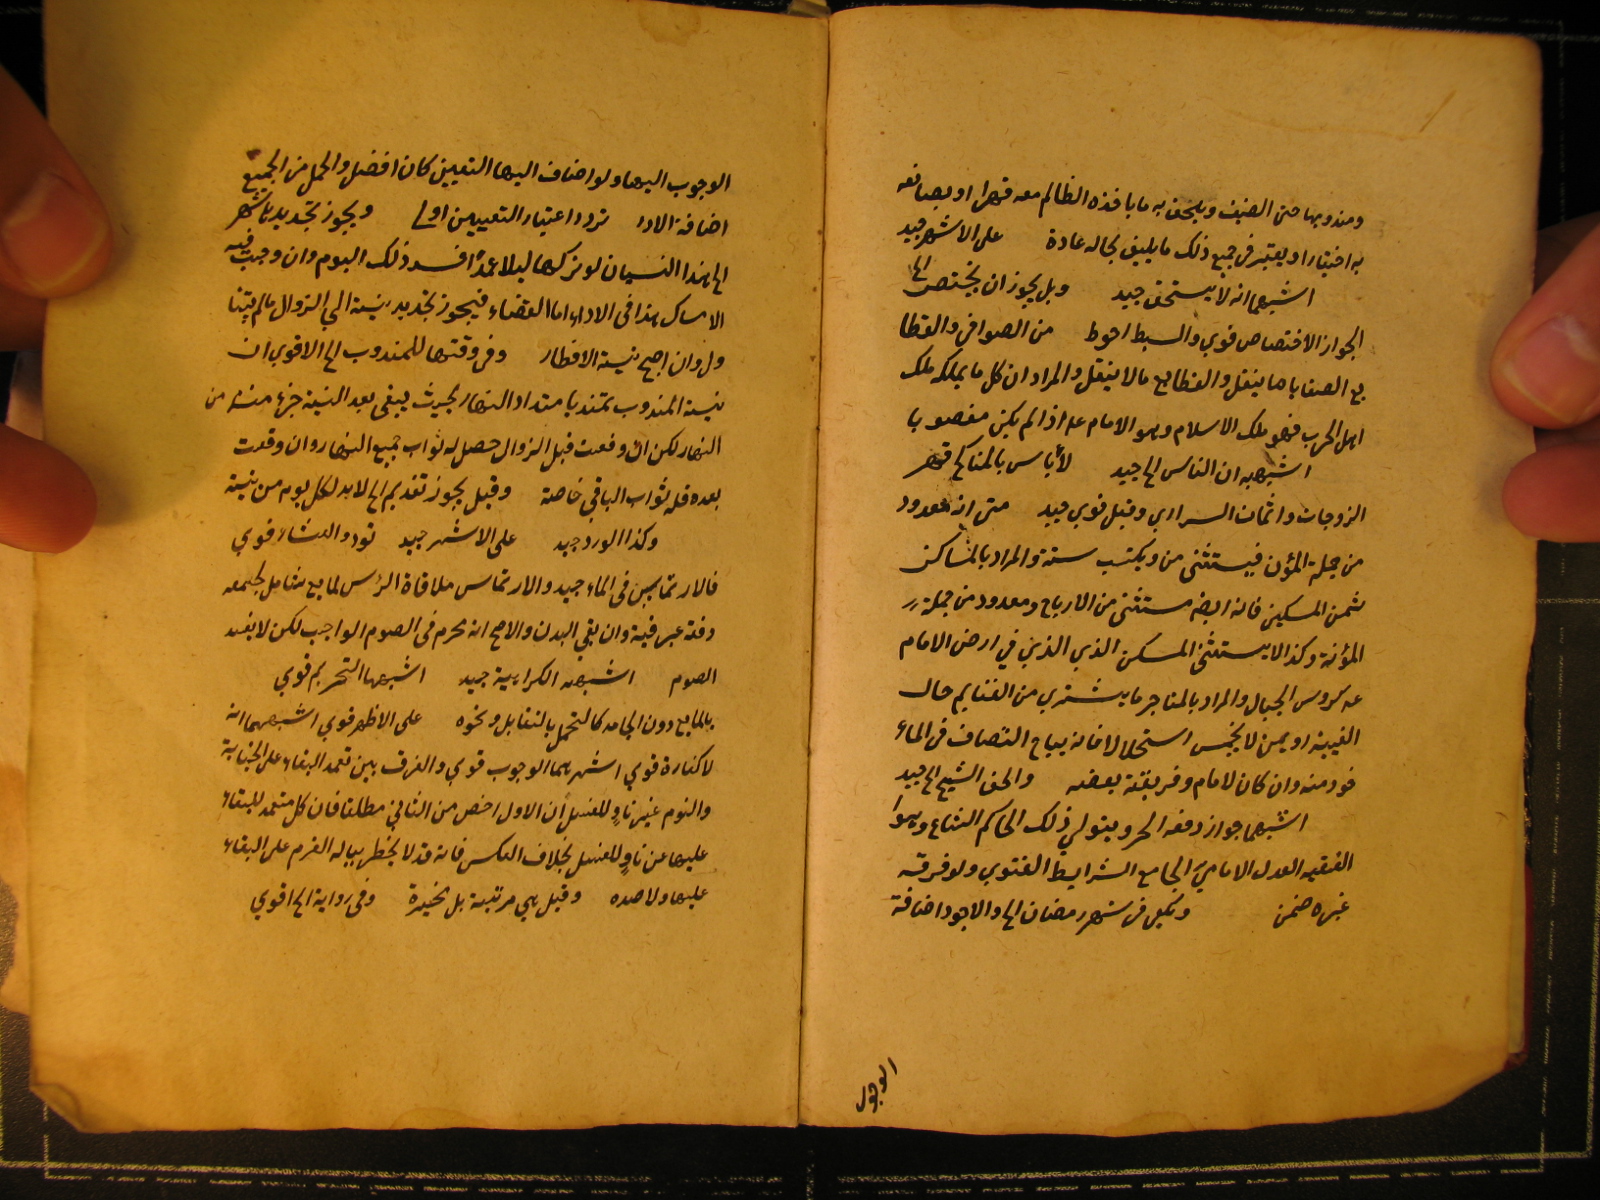 ومندوبها حق الضيف ويلحق به ما يأخذه الظالم معه قهرا او يصانعه
به اختيارا ويعتبر في جميع ذلك ما يليق بحاله عادة على الاشهر جيد
اشبهها انه لا يستحق جيد وبل يجوز ان يختص الخ
الجواز الاختصاص قوي والبسط احوط من الصوافي والقطا
يع الصفايا ما ينقل والقطايع ما لا ينقل والمراد ان كل ما يملكه ملك
اهل الحرب فهو ملك الاسلام وهو الامام ع اذا لم يكن مغصوبا
اشبهه ان الناس الخ جيد لا باس بالمناكح وهي
الزوجات واثمان السراري وقيل قوي جيد متى انه معدود
من جملة المؤن فيستثنى من ويكتب سنته والمراد بالمساكن
ثمن المسكين فانه ايضا مستثنى من الارباح ومعدود من جملة
المؤنة وكذا لا يستثنى المسكن الذي الذين في ارض الامام
عه كروس الجبال والمراد بالمتاجر ما يشترى من الغنايم حال
الغيبة او ممن لا يخمس استحلالا فانه يباح التصاف في الماء
خوذ منه وان كان للامام وفريقته بعضه والحق الشيخ الخ جيد
اشبهها جواز دفعه الخ ويتولي ذلك الحاكم الشاع وهو
الفقيه العدل الامامي الجامع الشرايط الفتوي ولو فرقه
غيره ضمن ويكفي في شهر رمضان الخ والاجود اضافة
الوجوب
الوجوب اليها ولو اضاف اليها التعيين كان افضل واكمل من الجميع
اضافة الاداء تردد اعتبار التعيين اولى ويجوز تجديد ها شهر
الخ هذا النسيان لو تركها ليلا عمدا فسد ذلك اليوم وان وجب فيه
الامساك هذا في الاداء اما القضاء فيجوز تجديد نيته الي الزوال ما لم يتنا
ول وان اصبح بنية الافطار وفي وقتها للمندوب الخ الاقوي ان
نية المندوب تمتد بامتداد النهار بحيث يبقى بعد النية جزء منه من
النهار لكن ان وقعت قبل الزوال حصل له ثواب جميع النهار وان وقعت
بعده فله ثواب الباقي خاصة وقيل يجوز تقديم الخ لا بد لكل يوم من نية
وكذا الورد جيد على الاشهر جيد تردد المنشاء قوي
فالارتماس في الماء جيد والارتماس ملاقاة الرأس لمايع شامل لجميعه
دفعة عرفية وان بقي البدن والاصح انه يحرم في الصوم الواجب لكن لا يفسد
الصوم اشبهه الكراهية جيد اشبهها التحريم قوي
بالمايع دون الجامد كالتحمل بالتقابل ونحوه على الاظهر قوي اشبههما انه
لا كفارة قوي اشهرهما الوجوب قوي والفرق بين تعمد البقاء على الجنابة
والنوم غير ناو للغسل ان الاول اخص من الثاني مطلقا فان كل متعمد للبقاء
عليها غير ناو للغسل بخلاف العكس فانه قد لا يخطر بباله العزم على البقاء
عليها ولا ضده وقيل هي مرتبة بل مخيرة وفي رواية الخ اقوي